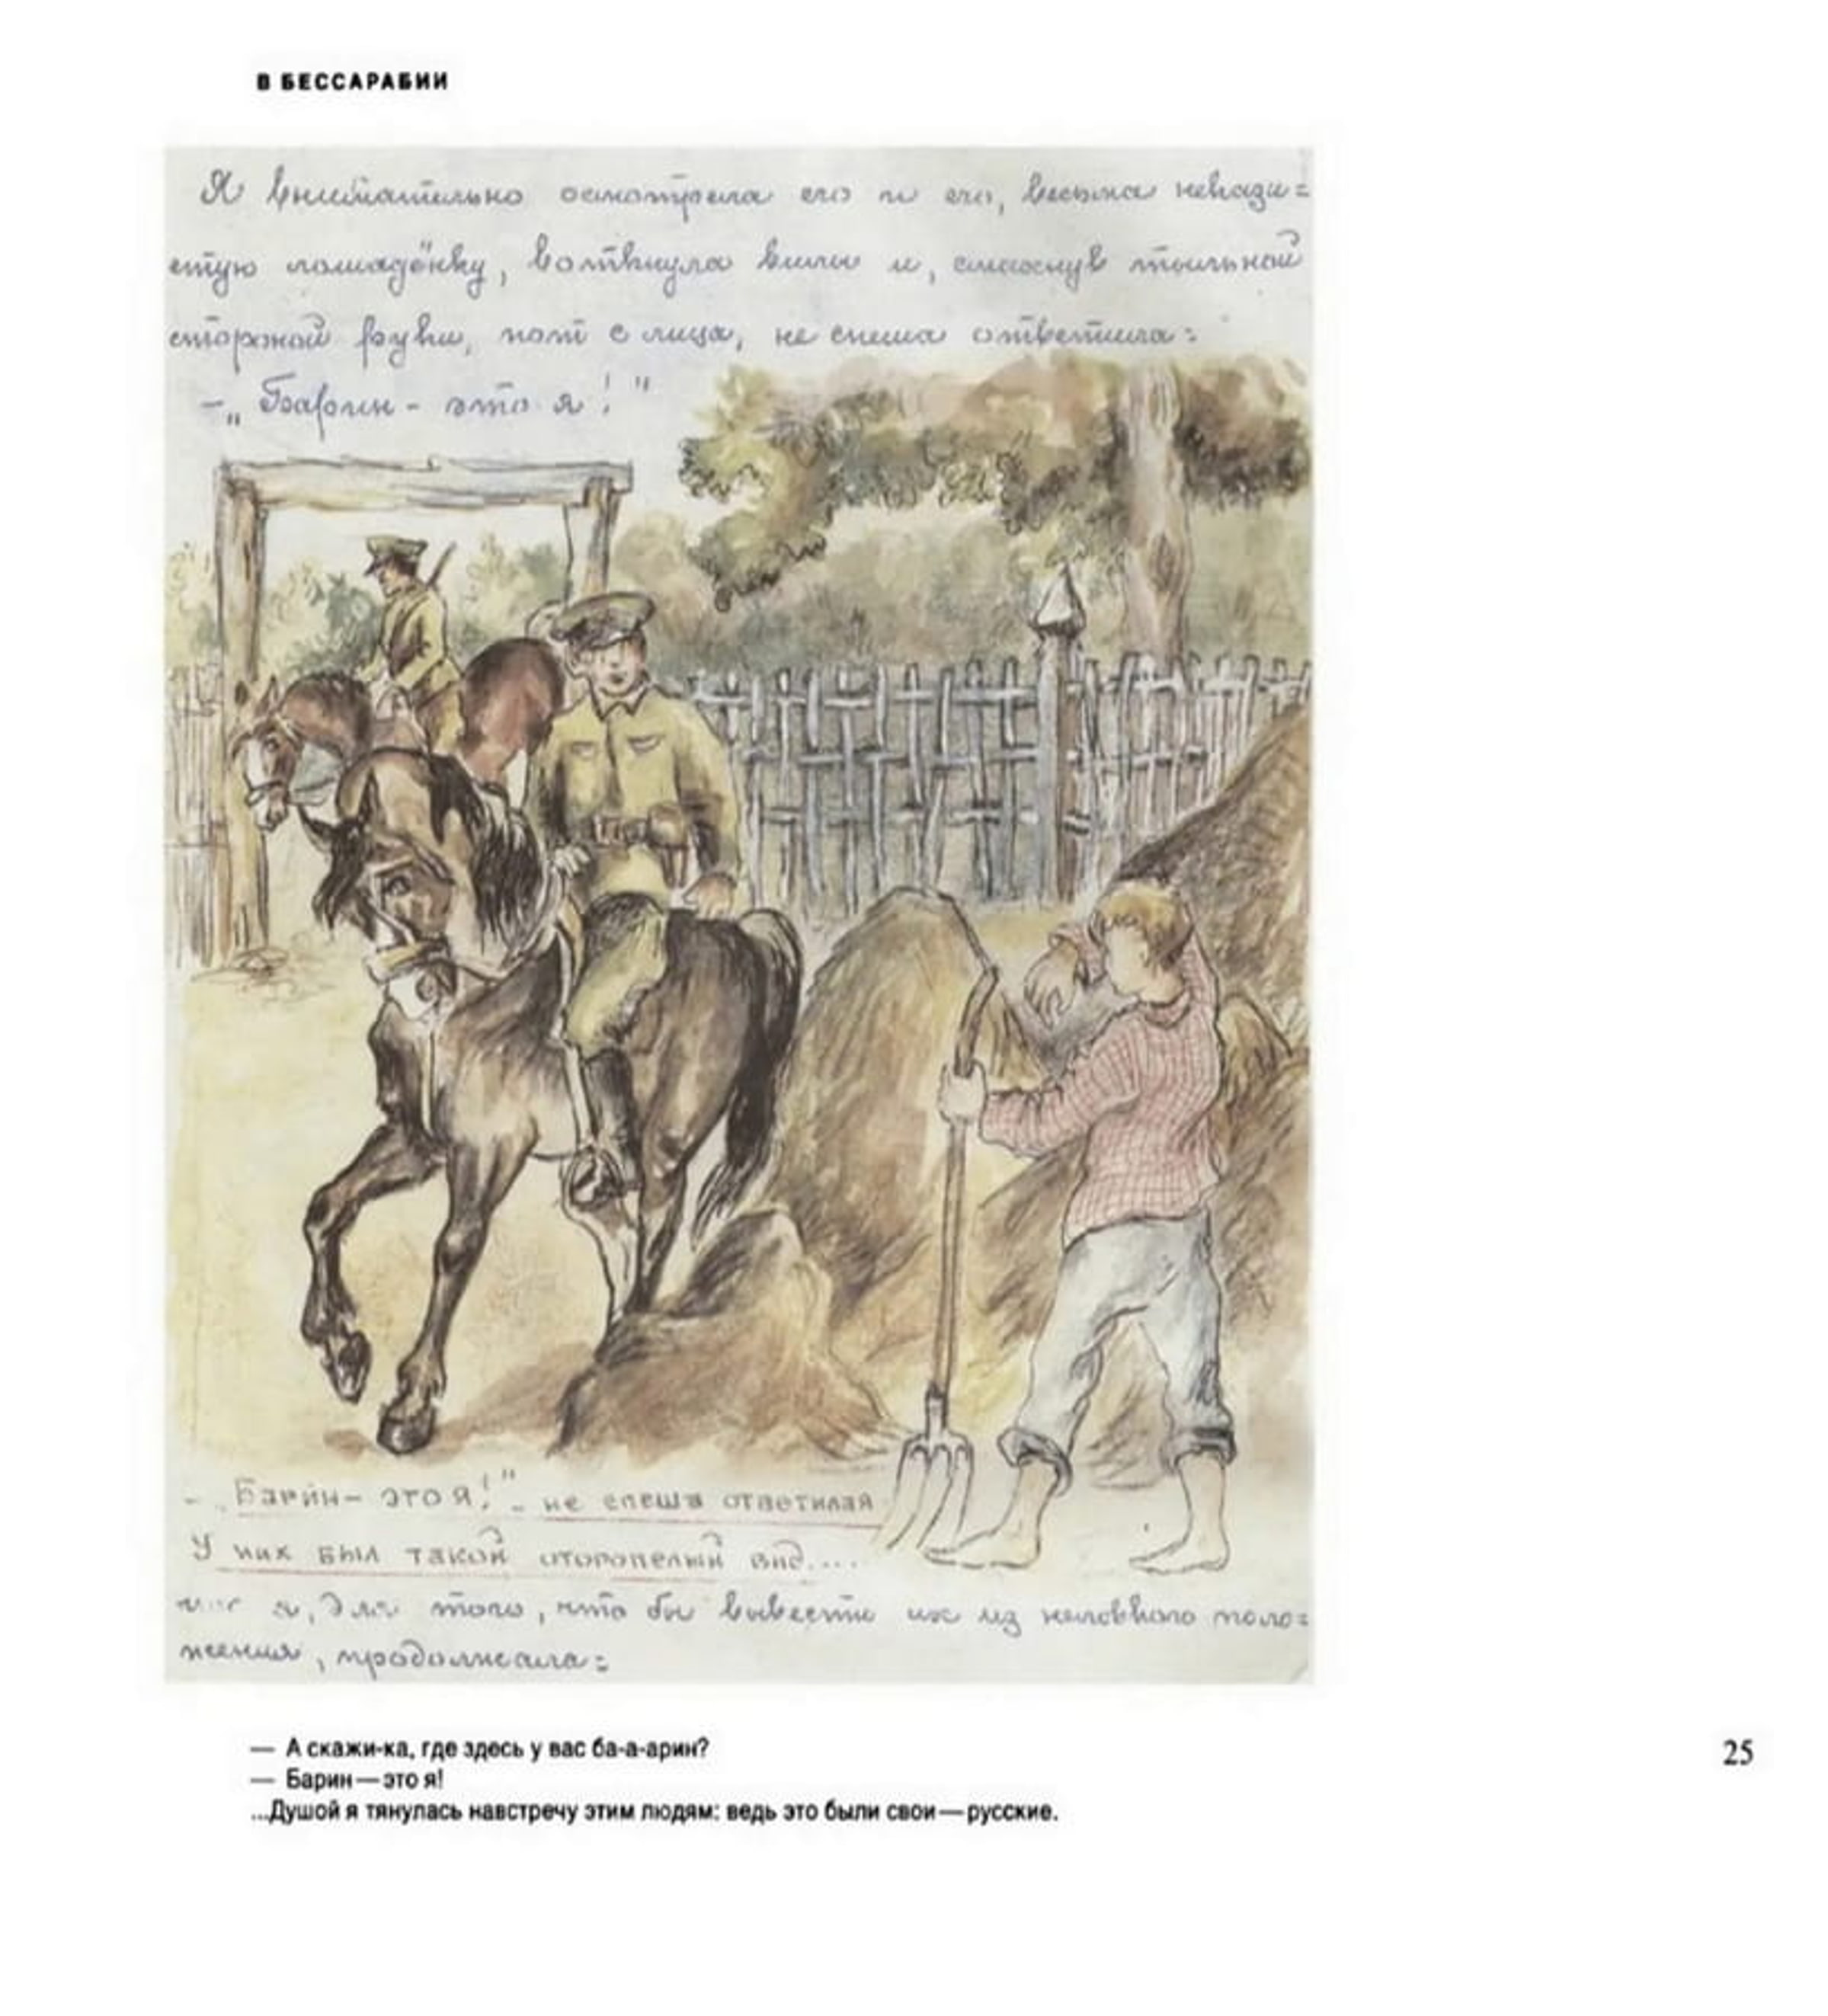 В БЕССАРАБИИ
Я внимательно осмотрела его и его, весьма некази=
стую лошадёнку, воткнула вилы и, смахнув тыльной
стороной руки, пот с лица, не спеша ответила:
–„Барин – это я!"
– „Барин – это я!" – не спеша ответила я
У них был такой оторопелый вид....
я, для того, что бы вывести их из неловкого поло=
жения, продолжала:
— А скажи-ка, где здесь у вас ба-а-арин?
— Барин — это я!
...Душой я тянулась навстречу этим людям: ведь это были свои — русские.
25